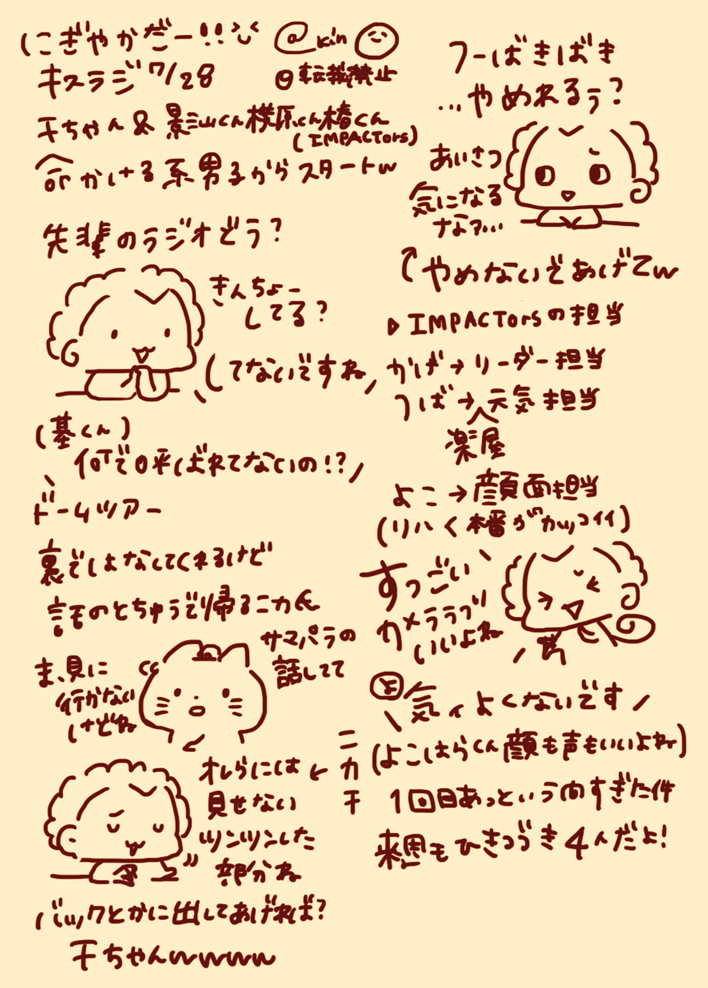 にぎやかだー!!
@kin
キスラジ7/28
@転載禁止
千ちゃん& 影山くん横原くん椿くん
(IMPACTors)
命かける系男子からスタートw
先輩のラジオどう?
きんちょー
してる?
してないですね
(基くん)
何で呼ばれてないの!?
ドームツアー
裏でしょなしてくれるけど
話のとちゅうで帰るニカ氏
サマパラの
話してて
ま、見に
行かない
けどね
ニカ千
オレらには
見せない
ツンツンした
部分ね
バックとかに出してあげれば?
千ちゃんwwww
フーばきばき
…やめれるぅ?
あいさつ
気になる
なァ…
やめないであげてw
▷IMPACTorsの担当
かげ→リーダー担当
つば→元気担当
楽屋
よこ→顔面担当
(リハく本番がカッコイイ)
すっごい
カメララブッ
いいよね
よ
気ィよくないです
(よこはらくん顔も声もいいよね)
1回目あっという間すぎた件
来週もひきつづき4人だよ!